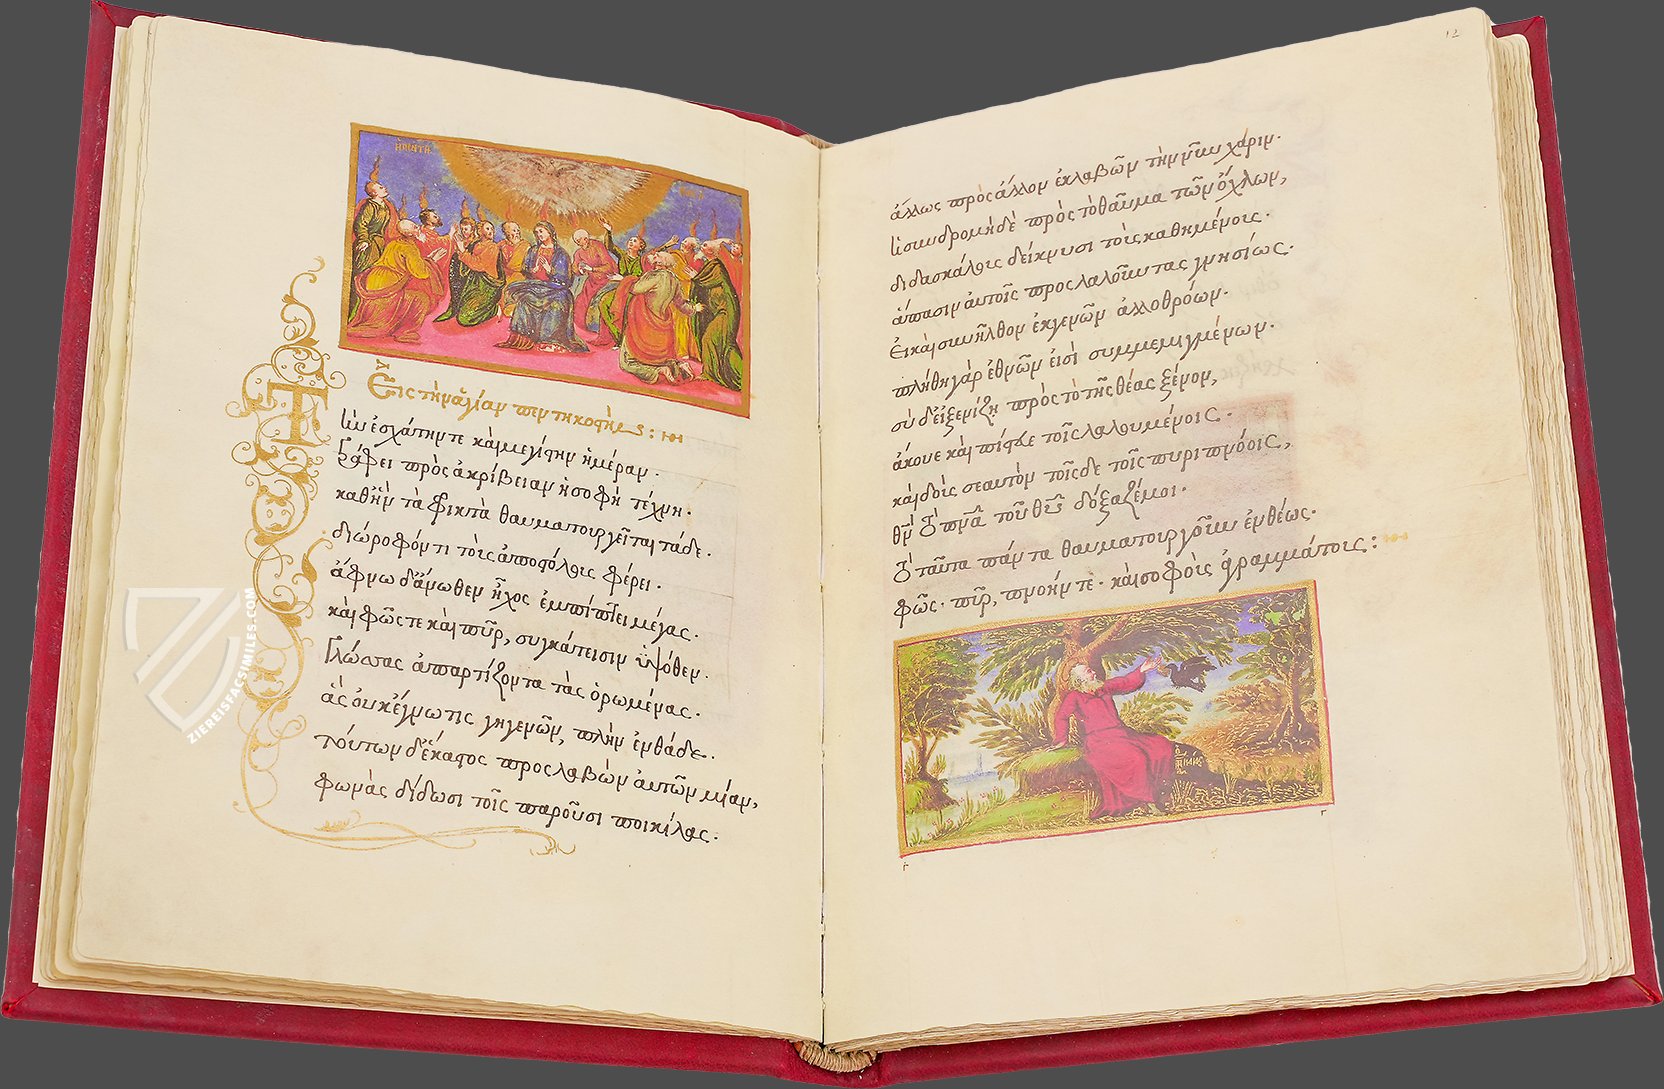 Η ΠΕΝΤΗ
Εἰς τὴν ἁγίαν πεντηκοστήν :
Τὴν ἐσχάτην τε καὶ μεγίστην ἡμέραν .
γράφει πρὸς ἀκρίβειαν ἡ σοφὴ τέχνη .
καθ' ἣν τὰ φρικτὰ θαυματουργεῖται τάδε .
τοῖς ἀποστόλοις φέρει .
ἄφνω δ' ἄνωθεν ἦχος ἐμπίπτει μέγας .
καὶ φῶς τε καὶ πῦρ, συγκάτεισιν ὑψόθεν .
Γλώσσας ἀπαρτίζοντα τὰς ὁρωμένας .
ἃς οὐκ ἔγνω τις γηγενῶν, πλὴν ἐνθάδε .
τούτων δ' ἕκαστος προσλαβὼν αὐτῶν μίαν,
φωνὰς δίδωσι τοῖς παροῦσι ποικίλας .
12
ἄλλως πρὸς ἄλλον ἐκλαβῶν τὴν χάριν .
ἡ συνδρομὴ δὲ πρὸς τὸ θαῦμα τῶν ὄχλων,
διδασκάλοις δείκνυσι τοῖς καθημένοις .
ἅπασιν αὐτοῖς προσλαλοῦντας γνησίως .
Εἰ καὶ συνῆλθον ἐκ γενῶν ἀλλοθρόων .
πλήθη γὰρ ἐθνῶν εἰσὶ συμμεμιγμένων .
σὺ δ' εἰ ξενίζῃ πρὸς τὸ τῆς θέας ξένον,
ἄκουε καὶ πίστευε τοῖς λαλουμένοις .
καὶ δοὺς σεαυτὸν τοῖσδε τοῖς πυριπνόοις,
θν τὸ πνα τοῦ θυ δόξαζέ μοι .
τὸ ταῦτα πάντα θαυματουργοῦν ἐνθέως .
φῶς . πῦρ, πνοήν τε . καὶ σοφοῖς γράμμασι :
ZIEREISFACSIMILES.COM